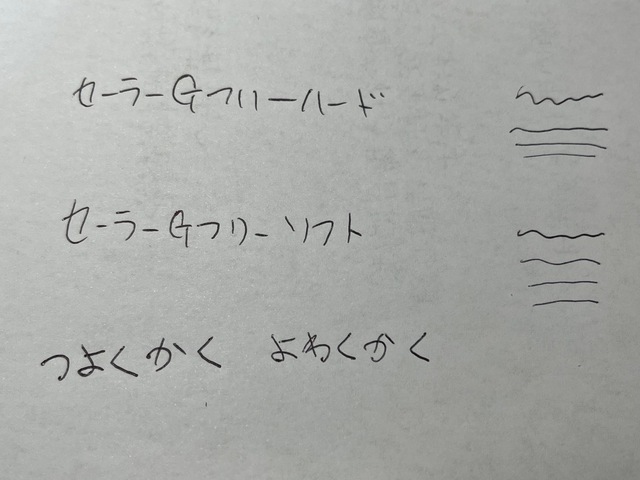 セーラーGフリーハード
セーラーGフリーソフト
つよくかく よわくかく